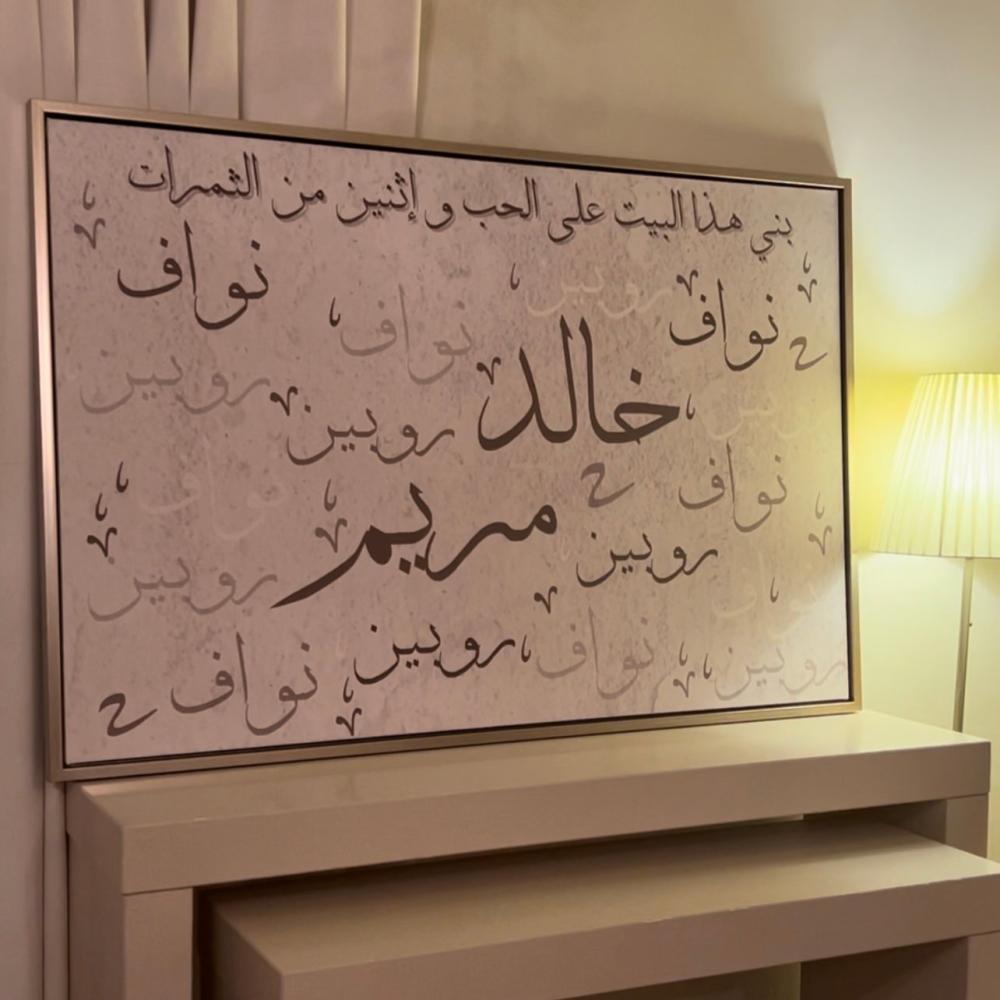 بني هذا البيت على الحب و إثنين من الثمرات
نواف
روبين
نواف
نواف
خالد
روبين
روبين
روبين
نواف
نواف
مريم
روبين
روبين
نواف
روبين
نواف
نواف
روبين